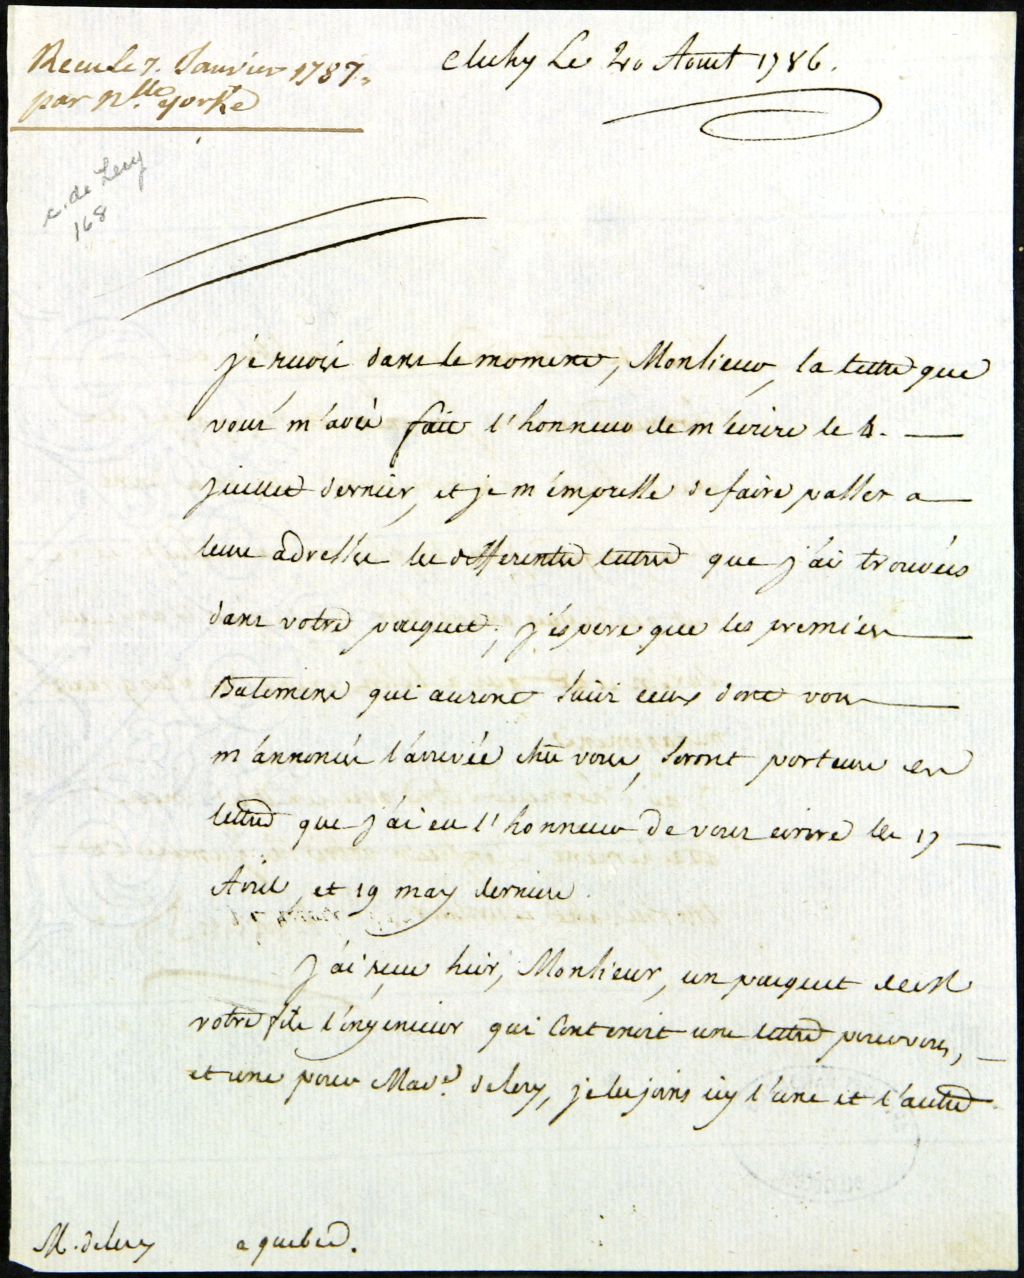 Recu le 7. Janvier 1787.
par Nlle york
Clichy Le 20 Aout 1786.
c. de Lery
168
je recois dans le moment, Monsieur, la lettre que
vous m'avés fait l'honneur de m'écrire le 4.
juillet dernier, et je m'empresse de faire passer a
leurs adresses les differentes lettres que j'ai trouvées
dans votre pacquet; j'espere que les premiers
Batimens qui auront suivi ceux dont vous
m'annoncés l'arrivée chés vous, seront porteurs des
lettres que j'ai eu l'honneur de vous ecrire les 17
Avril et 19 may derniers.
J'ai recu hier, Monsieur, un pacquet de M
votre fils l'ingenieur qui Contenoit une lettre pour vous,
et une pour Made. de lery, je les joins icy l'une et l'autre
M. de lery a quebec.